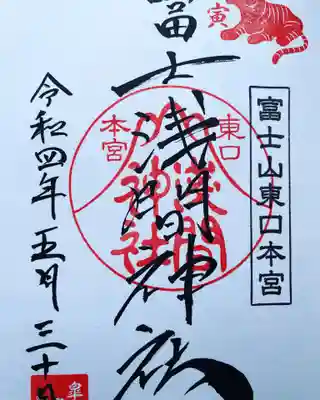 富士山東口本宮
寅
富士浅間神社
東口
本宮
浅間
神社
令和四年五月三十日